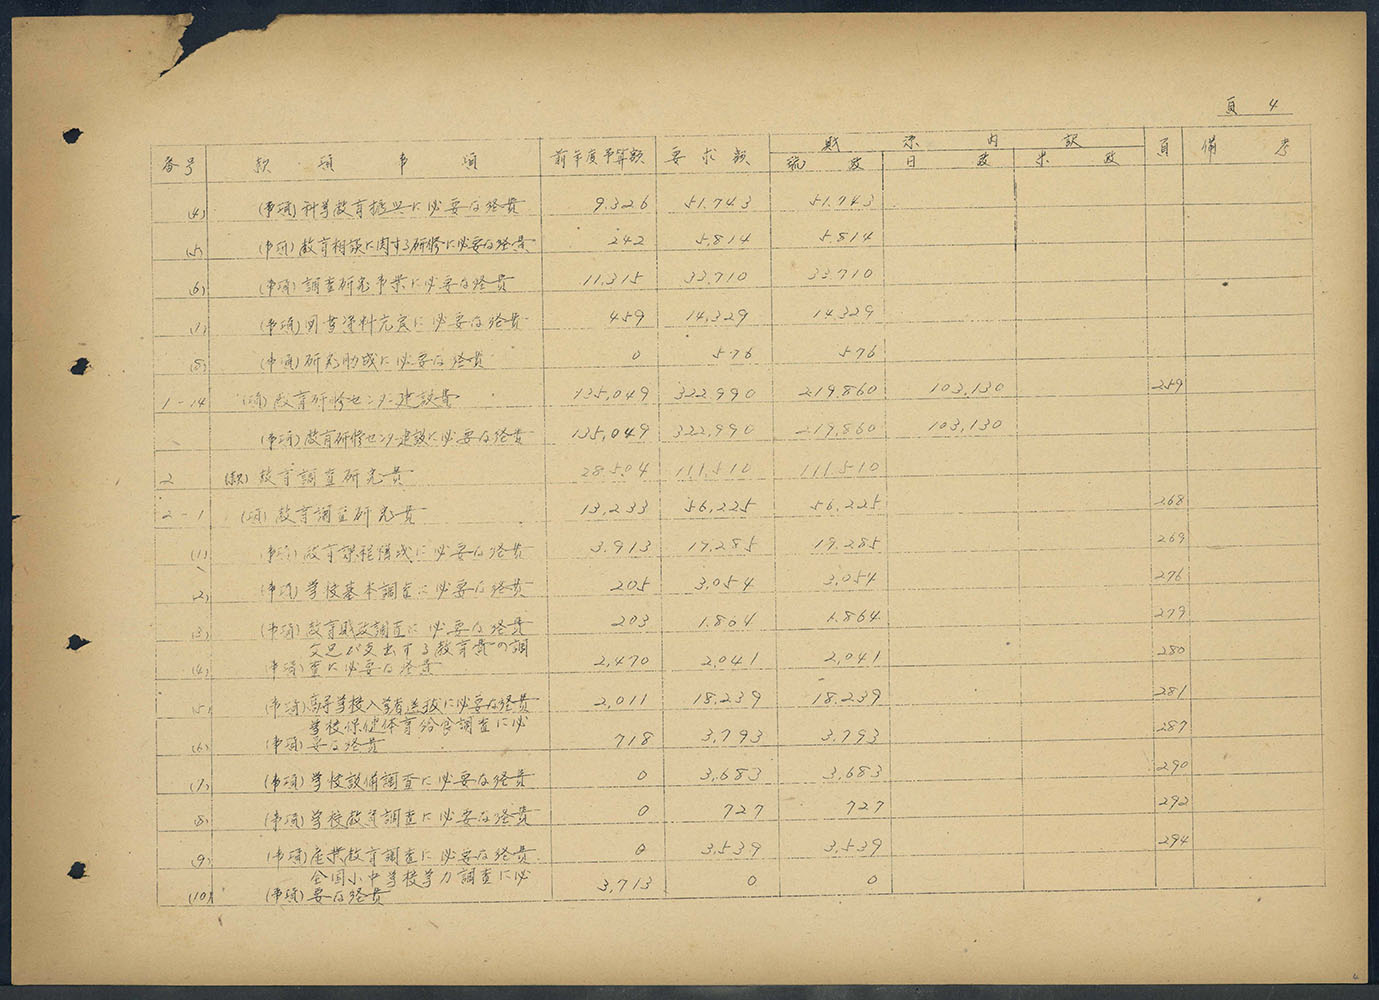 頁 4
番号 款 項 事 項 前年度予算額 要求額 財源内訳 頁 備考
琉政 日政 米政
(4) (事項) 科学教育振興に必要な経費 9,326 51,743 51,743
(5) (事項) 教育相談に関する研修に必要な経費 242 5,814 5,814
(6) (事項) 調査研究事業に必要な経費 11,315 33,710 33,710
(7) (事項) 図書資料充実に必要な経費 459 14,329 14,329
(8) (事項) 研究助成に必要な経費 0 576 576
1-14 (項) 教育研修センター建設費 135,049 322,990 219,860 103,130 259
(事項) 教育研修センター建設に必要な経費 135,049 322,990 219,860 103,130
2 (款) 教育調査研究費 28,504 111,510 111,510
2-1 (項) 教育調査研究費 13,233 56,225 56,225 268
(1) (事項) 教育課程構成に必要な経費 3,913 19,285 19,285 269
(2) (事項) 学校基本調査に必要な経費 205 3,054 3,054 276
(3) (事項) 教育財政調査に必要な経費 203 1,864 1,864 279
(4) (事項) 父兄が支出する教育費の調
査に必要な経費 2,470 2,041 2,041 280
(5) (事項) 高等学校入学者選抜に必要な経費 2,011 18,239 18,239 281
(6) (事項) 学校保健体育給食調査に必
要な経費 718 3,793 3,793 287
(7) (事項) 学校設備調査に必要な経費 0 3,683 3,683 290
(8) (事項) 学校教育調査に必要な経費 0 727 727 292
(9) (事項) 産業教育調査に必要な経費 0 3,539 3,539 294
(10) (事項) 全国小中学校学力調査に必
要な経費 3,713 0 0
4